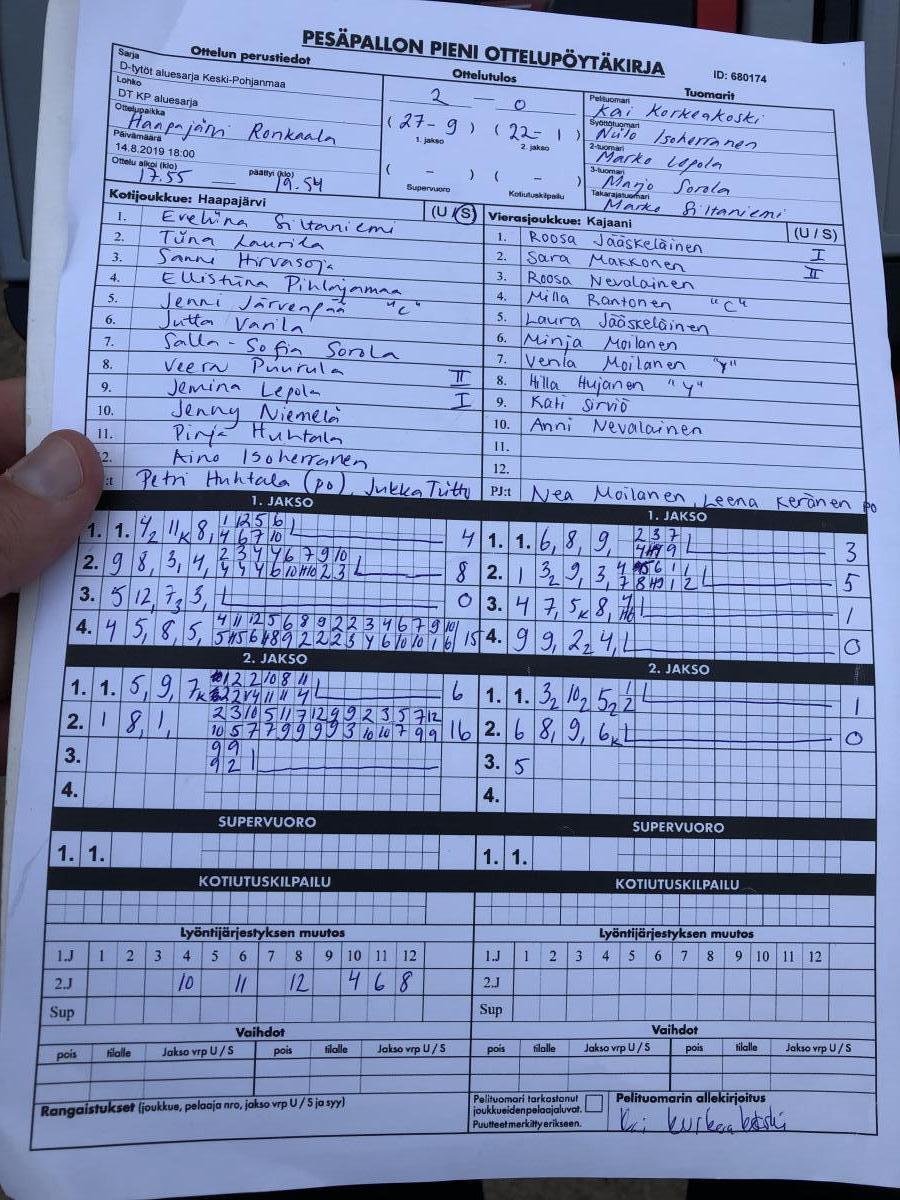 PESÄPALLON PIENI OTTELUPÖYTÄKIRJA
ID: 680174
Ottelun perustiedot
Sarja
D-tytöt aluesarja Keski-Pohjanmaa
Lohko
DT KP aluesarja
Ottelupaikka
Haapajärvi Ronkaala
Päivämäärä
14.8.2019 18:00
Ottelu alkoi (klo) 17.55 päättyi (klo) 19.54
Ottelutulos
2 - 0
(27-9) (22-1)
1. jakso 2. jakso
( - ) ( - )
Supervuoro Kotiutuskilpailu
Tuomarit
Pelituomari
Kai Korkeakoski
Syöttötuomari
Niilo Isoherranen
2-tuomari
Marko Lepola
3-tuomari
Marjo Sorola
Takarajatuomari
Marko Siltaniemi
Kotijoukkue: Haapajärvi (U / S)
1. Eveliina Siltaniemi
2. Tiina Laurila
3. Sanni Hirvasoja
4. Ellistiina Pihlajamaa
5. Jenni Järvenpää "C"
6. Jutta Varila
7. Salla-Sofia Sorola
8. Veera Puurula II
9. Jemina Lepola I
10. Jenny Niemelä
11. Pinja Huhtala
12. Aino Isoherranen
:t Petri Huhtala (po), Jukka Tiitto
Vierasjoukkue: Kajaani (U / S)
1. Roosa Jääskeläinen I
2. Sara Makkonen II
3. Roosa Nevalainen
4. Milla Rantonen "C"
5. Laura Jääskeläinen
6. Minja Moilanen
7. Venla Moilanen "Y"
8. Hilla Hujanen "Y"
9. Kati Sirviö
10. Anni Nevalainen
11.
12.
PJ:t Nea Moilanen, Leena Keränen po
1. JAKSO
1. 1. 4
2. 9 8, 3, 4, 8
3. 5 12, 7, 3, 0
4. 4 5, 8, 5, 15
1. JAKSO
1. 1. 6, 8, 9, 3
2. 1 3, 9, 3, 5
3. 4 7, 5K 8, 1
4. 9 9, 2, 4, 0
2. JAKSO
1. 1. 5, 9, 7K 6
2. 1 8, 1, 16
3.
4.
2. JAKSO
1. 1. 3, 10, 5, 1
2. 6 8, 9, 6K 0
3. 5
4.
SUPERVUORO
1. 1.
SUPERVUORO
1. 1.
KOTIUTUSKILPAILU
KOTIUTUSKILPAILU
Lyöntijärjestyksen muutos
1.J 1 2 3 4 5 6 7 8 9 10 11 12
2.J 10 11 12 4 6 8
Sup
Lyöntijärjestyksen muutos
1.J 1 2 3 4 5 6 7 8 9 10 11 12
2.J
Sup
Vaihdot
pois tilalle Jakso vrp U / S pois tilalle Jakso vrp U / S
Vaihdot
pois tilalle Jakso vrp U / S pois tilalle Jakso vrp U / S
Rangaistukset (joukkue, pelaaja nro, jakso vrp U / S ja syy)
Pelituomari tarkastanut
joukkueidenpelaajaluvat.
Puutteet merkitty erikseen.
Pelituomarin allekirjoitus